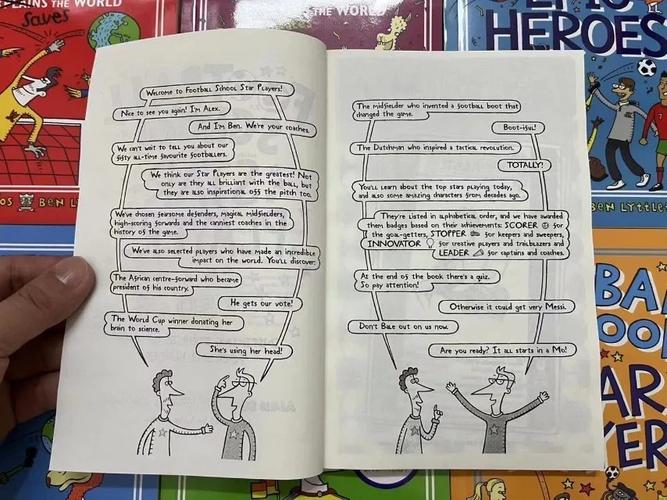 PLAINS THE WORLD
Saves
THE WORLD
EPIC
HEROES
Welcome to Football School Star Players!
Nice to see you again! I'm Alex.
And I'm Ben. We're your coaches.
We can't wait to tell you about our
fifty all-time favourite footballers.
We think our Star Players are the greatest! Not
only are they all brilliant with the ball, but
they are also inspirational off the pitch too.
We've chosen fearsome defenders, magical midfielders,
high-scoring forwards and the canniest coaches in the
history of the game.
We've also selected players who have made an incredible
impact on the world. You'll discover:
The African centre-forward who became
president of his country.
He gets our vote!
The World Cup winner donating her
brain to science.
She's using her head!
The midfielder who invented a football boot that
changed the game.
Boot-iful!
The Dutchman who inspired a tactical revolution.
TOTALLY!
You'll learn about the top stars playing today,
and also some amazing characters from decades ago.
They're listed in alphabetical order, and we have awarded
them badges based on their achievements: SCORER for
the goal-getters, STOPPER for keepers and sweepers,
INNOVATOR for creative players and trailblazers and
LEADER for captains and coaches.
At the end of the book there's a quiz.
So pay attention!
Otherwise it could get very Messi.
Don't Bale out on us now.
Are you ready? It all starts in a Mo!
BEN L
BEN LYTTLE